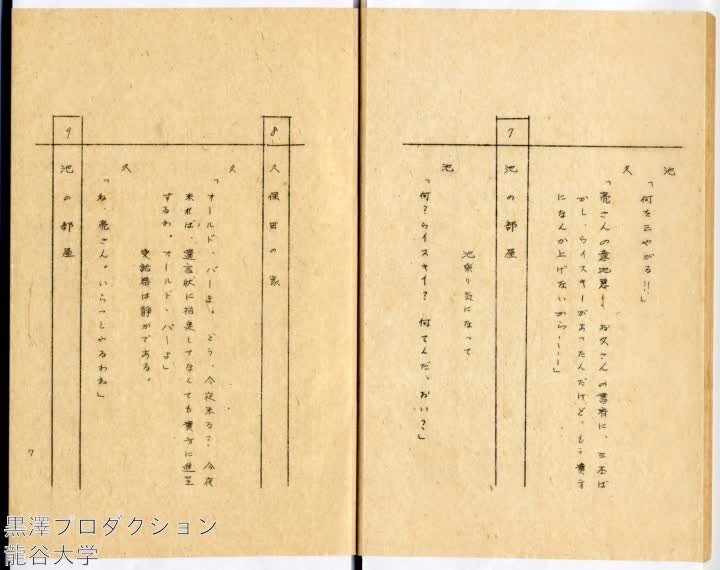 池
「何を云やがる!!」
久
「亮さんの意地悪! お久さんの書斎に、三本ば
かし、ウイスキーがあったんだけど、もう貴方
になんか上げないから……」
7 池の部屋
池乗り気になって
池
「何?ウイスキイ? 何てんだ、おい?」
8 久保田の家
久
「オールド・パーよ。どう、今夜来る? 今夜
来れば、遺言状に指定してなくても貴方に進呈
するわ。オールド・パーよ」
受話器は静かである。
久
「ね、亮さん。いらっしやるわね」
9 池の部屋
7
黒澤プロダクション
龍谷大学